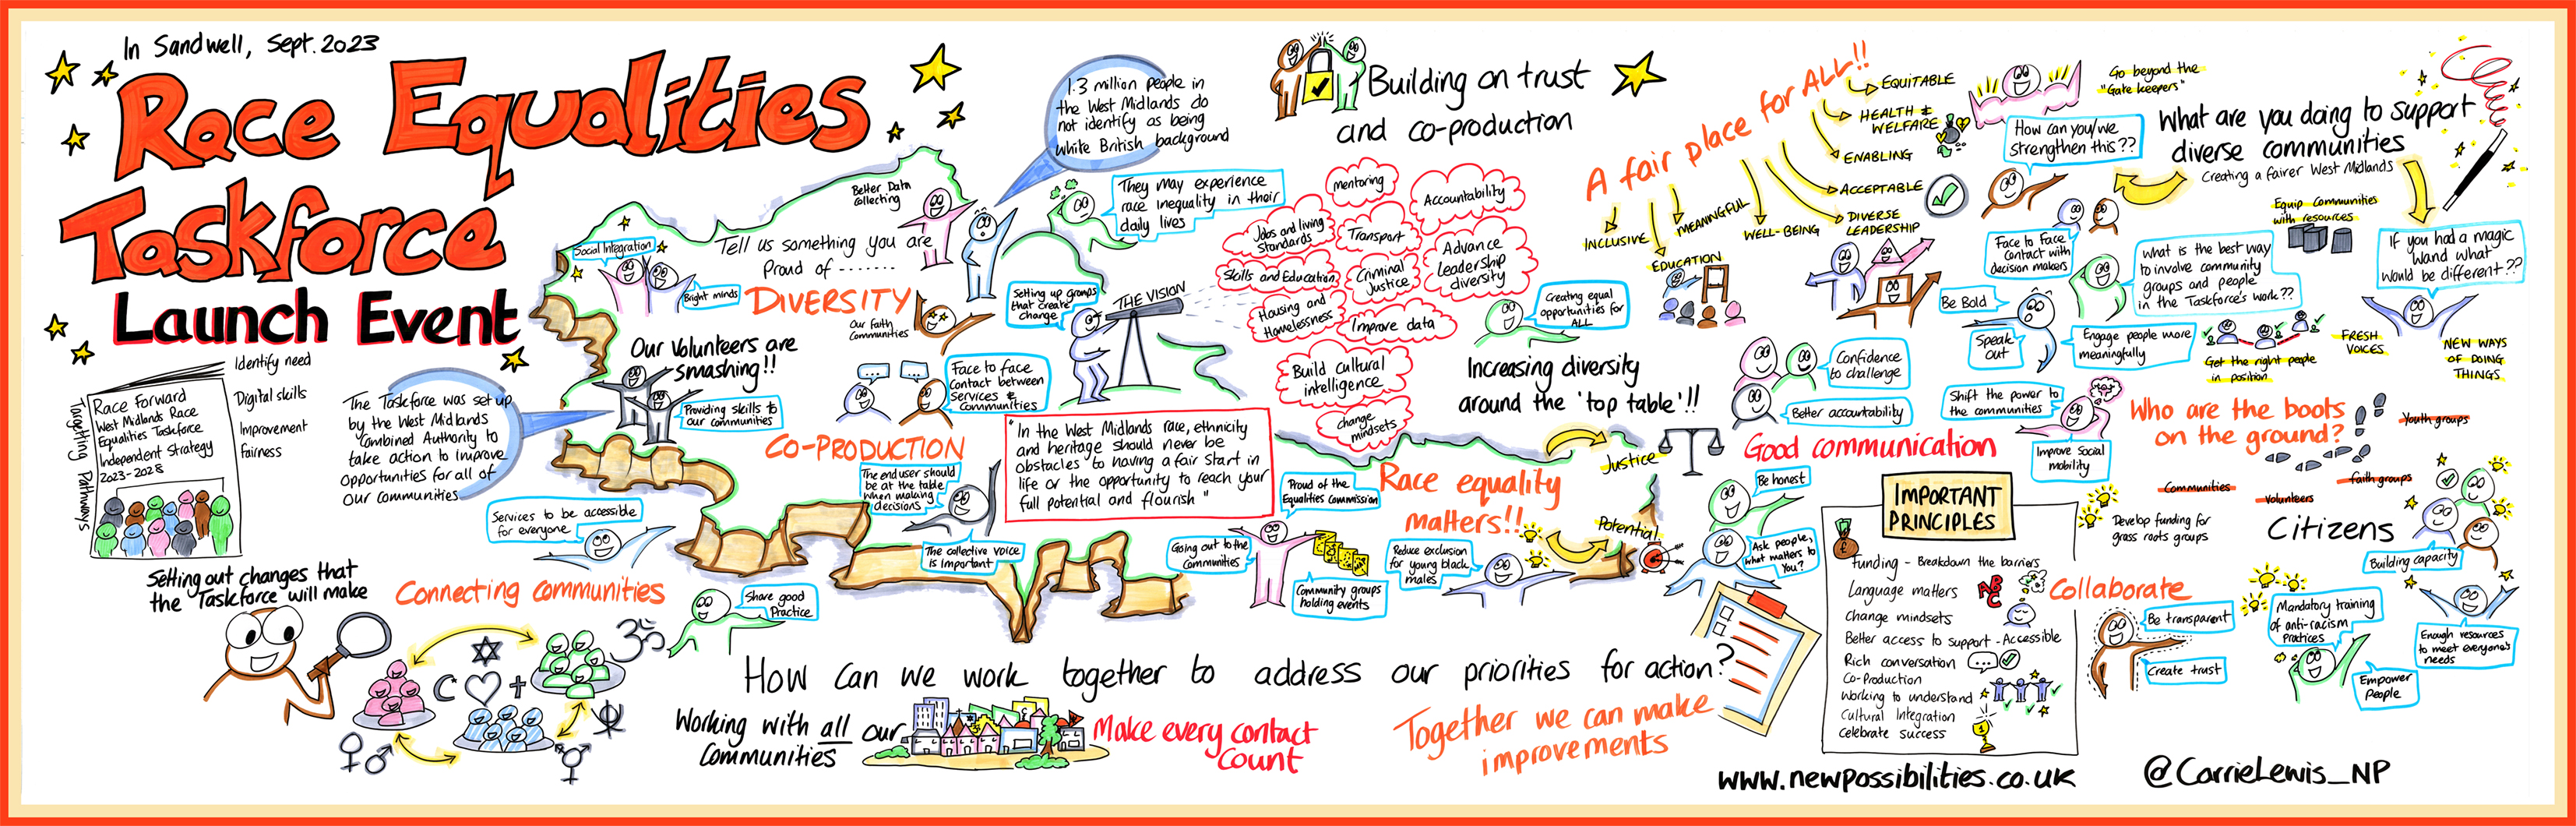 In Sandwell, Sept. 2023
Race Equalities
Taskforce
Launch Event
Identify need
Digital skills
Improvement
Fairness
Targetting Pathways
Race Forward
West Midlands Race
Equalities Taskforce
Independent Strategy
2023-2028
The Taskforce was set up
by the West Midlands
Combined Authority to
take action to improve
opportunities for all of
our communities
Setting out changes that
the 'Taskforce' will make
Connecting communities
Services to be accessible
for everyone
Share good
Practice
Social Integration
Bright minds
Better Data
Collecting
Tell us something you are
Proud of -------
DIVERSITY
Our faith
Communities
Our Volunteers are
smashing!!
Providing skills to
our communities
Face to face
Contact between
Services &
Communities
CO-PRODUCTION
The end user should
be at the table
when making
decisions
The collective voice
is important
1.3 million people in
the West Midlands do
not identify as being
white British background
They may experience
race inequality in their
daily lives
Setting up groups
that create
change
THE VISION
"In the West Midlands race, ethnicity
and heritage should never be
obstacles to having a fair start in
life or the opportunity to reach your
full potential and flourish"
Building on trust
and co-production
mentoring
Accountability
Jobs and living
Standards
Transport
Advance
leadership
diversity
Skills and Education
Criminal
Justice
Housing and
Homelessness
Improve data
Build cultural
intelligence
change
mindsets
Creating equal
opportunities for
ALL
Increasing diversity
around the 'top table'!!
Proud of the
Equalities Commission
Race equality
matters!!
Going out to the
Communities
Community groups
holding events
Reduce exclusion
for young black
males
Justice
Potential
How can we work together to address our priorities for action?
Working with all our
Communities
Make every contact
Count
Together we can make
improvements
A fair place for ALL!!
EQUITABLE
HEALTH &
WELFARE
ENABLING
ACCEPTABLE
DIVERSE
LEADERSHIP
WELL-BEING
MEANINGFUL
EDUCATION
INCLUSIVE
Go beyond the
"Gate keepers"
How can you/we
strengthen this??
What are you doing to support
diverse communities
Creating a fairer West Midlands
Equip Communities
with resources
If you had a magic
wand what
would be different??
Face to Face
Contact with
decision makers
What is the best way
to involve community
groups and people
in the Taskforce's work??
Be Bold
Speak
Out
Engage people more
meaningfully
Get the right people
in position
FRESH
VOICES
NEW WAYS
OF DOING
THINGS
Confidence
to challenge
Better accountability
Good communication
Shift the power to
the communities
Improve Social
mobility
Who are the boots
on the ground?
Youth groups
faith groups
Communities
Volunteers
Citizens
Be honest
Ask people,
what matters to
you?
IMPORTANT
PRINCIPLES
Funding - Breakdown the barriers
Language matters
ABC
Change mindsets
Better access to support - Accessible
Rich conversation
Co-Production
Working to understand
Cultural Integration
Celebrate success
Develop funding for
grass roots groups
Building capacity
Collaborate
Be transparent
Create trust
Mandatory training
of anti-racism
Practices
Empower
People
Enough resources
to meet everyone's
needs
www.newpossibilities.co.uk
@CarrieLewis_NP